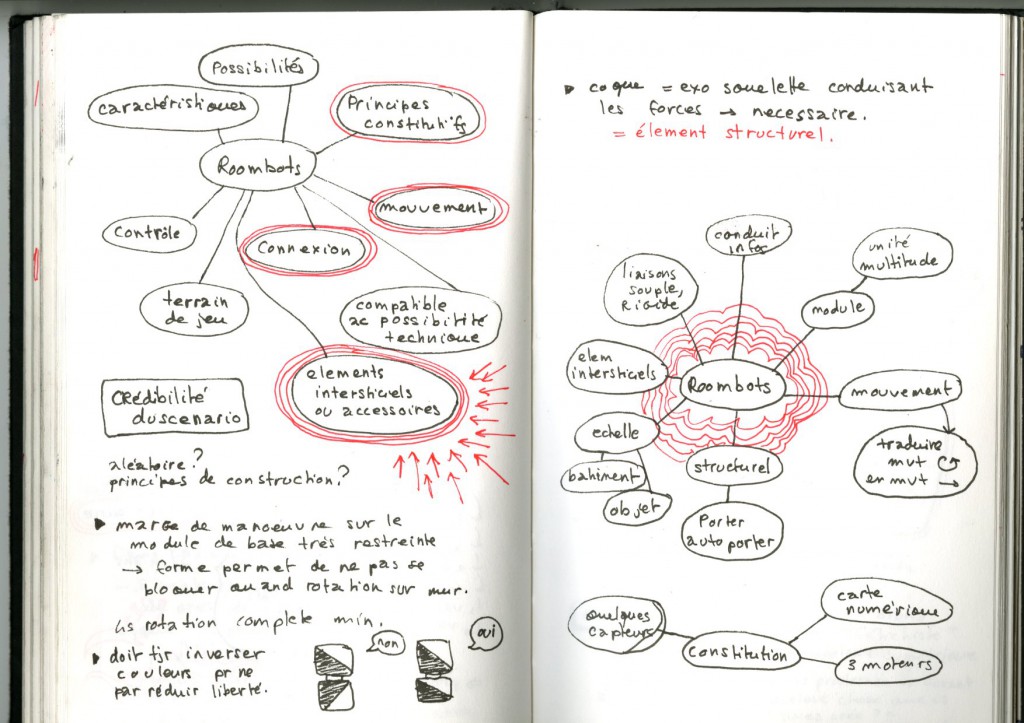 Possibilités
caractéristiques
Principes
constitutifs
Roombots
mouvement
contrôle
connexion
terrain
de jeu
compatible
ac possibilité
technique
elements
intersticiels
ou accessoires
CRÉdibilité
du scenario
aléatoire?
principes de construction?
▶ marge de manoeuvre sur le
module de base très restreinte
→ forme permet de ne pas se
bloquer quand rotation sur mur.
rotation complete min.
non
oui
▶ doit tjr inverser
couleurs pr ne
par réduir liberté.
▶ coque = exo squelette conduisant
les forces → necessaire.
= élement structurel.
conduit
infos
unité
multitude
liaisons
souple,
Rigide
module
elem
intersticiels
Roombots
mouvement
echelle
traduire
mvt ↻
en mvt →
structurel
batiment
objet
Porter
auto porter
quelques
capteurs
carte
numérique
constitution
3 moteurs